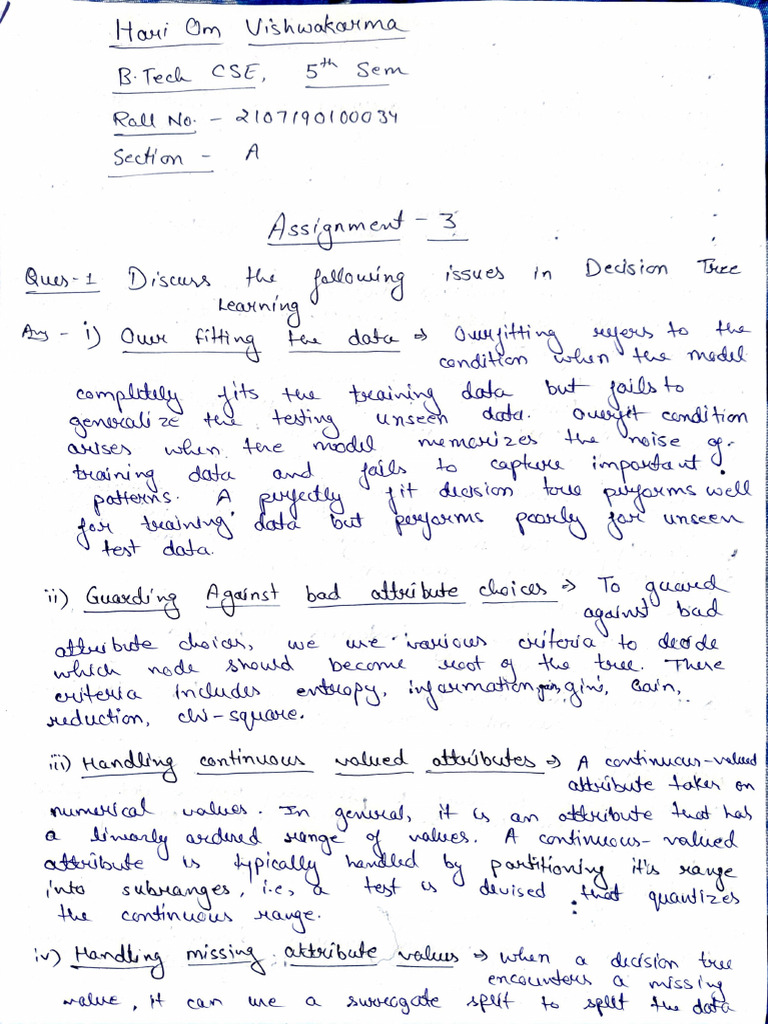 Hari Om Vishwakarma
B.Tech CSE, 5th Sem
Roll No. - 2107190100034
Section - A
Assignment - 3
Ques-1 Discuss the following issues in Decision Tree
Learning
Ans - i) Over fitting the data → Overfitting refers to the
condition when the model
completely fits the training data but fails to
generalize the testing unseen data. Overfit condition
arises when the model memorizes the noise of
training data and fails to capture important
patterns. A perfectly fit decision tree performs well
for training data but performs poorly for unseen
test data.
ii) Guarding Against bad attribute choices → To guard
against bad
attribute choices, we use various criteria to decide
which node should become root of the tree. These
criteria includes entropy, information gain, gini, Gain,
reduction, chi-square.
iii) Handling continuous valued attributes → A continuous-valued
attribute takes on
numerical values. In general, it is an attribute that has
a linearly ordered range of values. A continuous-valued
attribute is typically handled by partitioning it's range
into subranges, i.e, a test is devised that quantizes
the continuous range.
iv) Handling missing attribute values → when a decision tree
encounters a missing
value, it can use a surrogate split to split the data